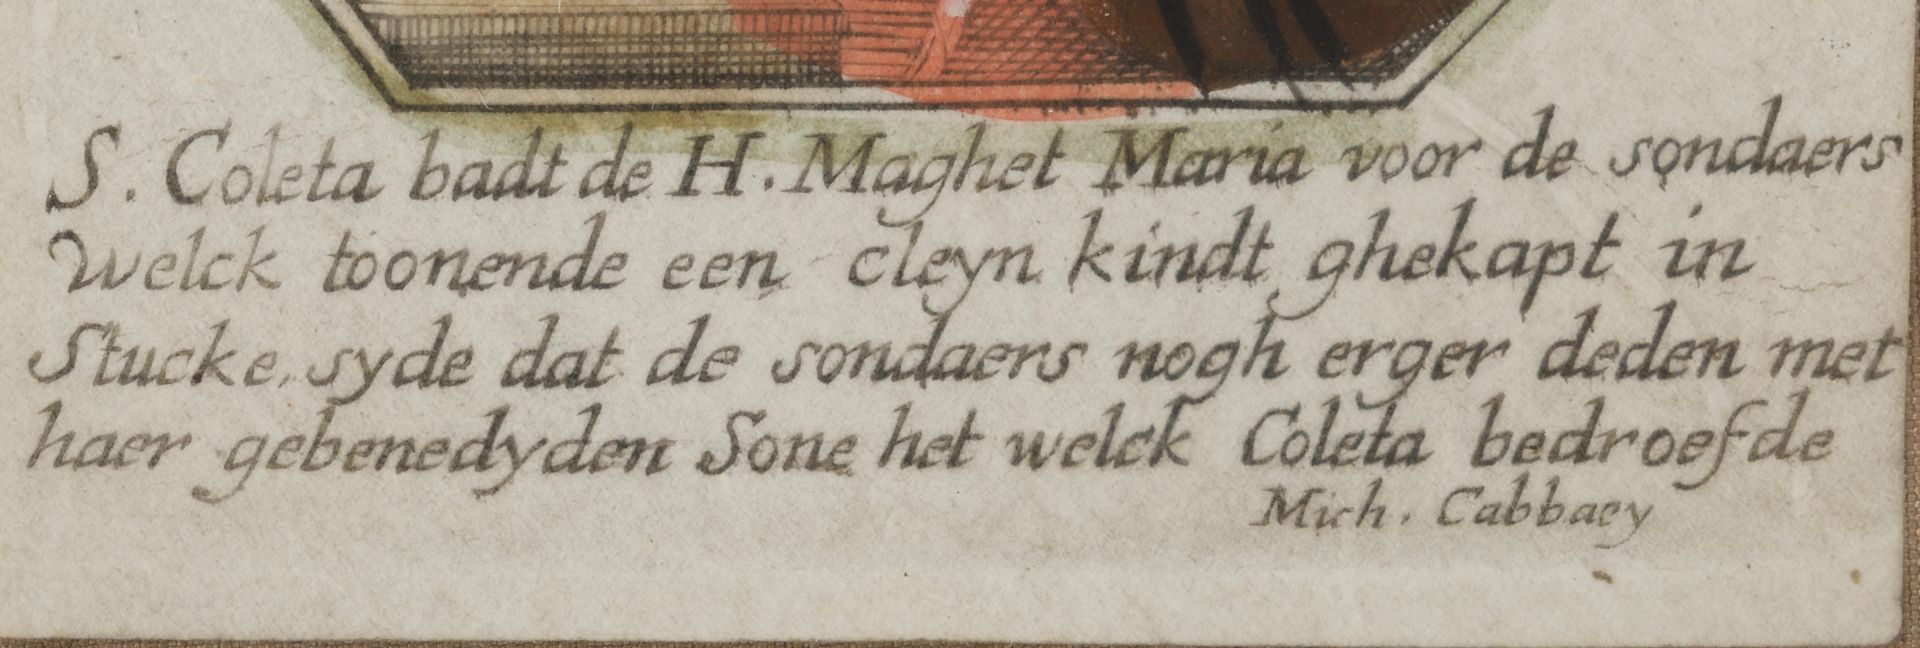 S. Coleta badt de H. Maghet Maria voor de sondaers
Welck toonende een cleyn kindt ghekapt in
Stucke, syde dat de sondaers nogh erger deden met
haer gebenedyden Sone het welck Coleta bedroefde
Mich. Cabbaey